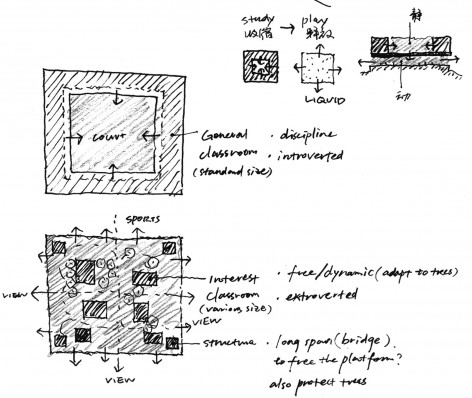 study → play
收缩 释放
静
LIQUID
动
court
General · discipline
classroom · introverted
(standard size)
SPORTS
Interest · free/dynamic (adapt to trees)
VIEW
classroom · extroverted
(various size)
VIEW
structure · long span (bridge)
to free the platform?
also protect trees
VIEW